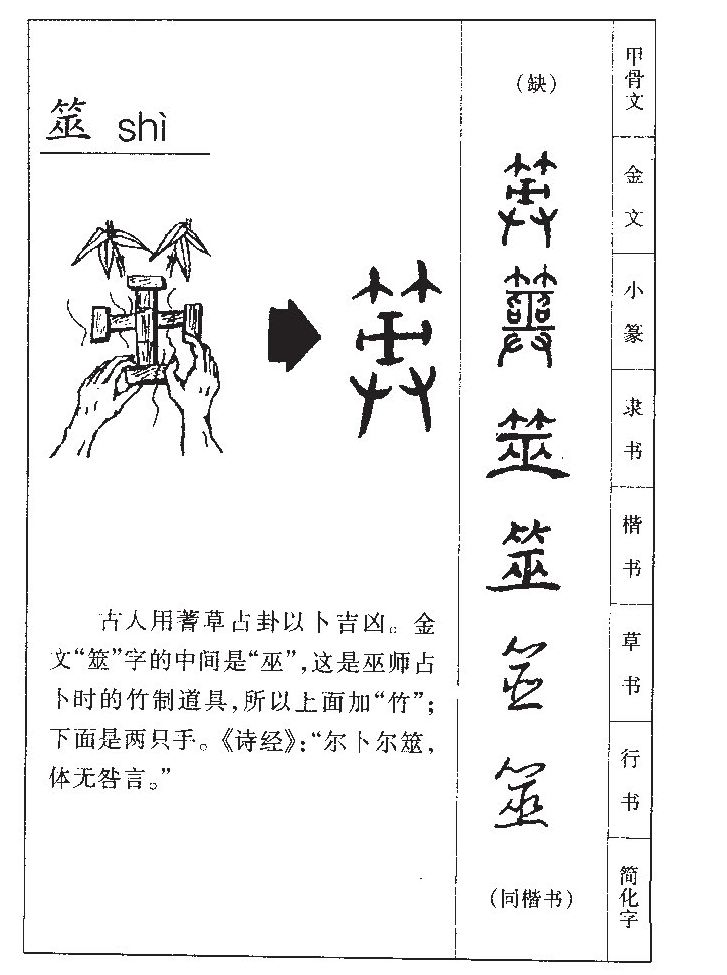 筮 shì
古人用蓍草占卦以卜吉凶。金
文“筮”字的中间是“巫”，这是巫师占
卜时的竹制道具，所以上面加“竹”；
下面是两只手。《诗经》：“尔卜尔筮，
体无咎言。”
（缺） 甲骨文
筮 金文
筮 小篆
筮 隶书
筮 楷书
筮 草书
筮 行书
（同楷书） 简化字